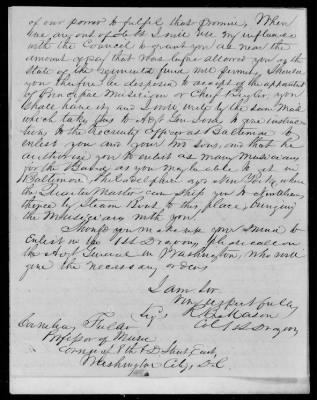 of our power to fulfil that promise, When
any out of debt I will use my influence
with the Council to grant you as near the
amount of pay that was before allowed you as the
State of the regimental fund will permit, Should
you therefore be disposed to accept of the appointment
of Principal Musician or Chief Bugler you
shall have it, and I will write by the same Mail
which takes this to Adjt General to give instruc
tions to the Recruiting Officer at Baltimore to
enlist you and your two sons, and that he
authorize you to enlist as many Musicians
for the Band as you may be able to get in
Baltimore, Philadelphia or New York, when
the Quarter Master can ship you to
thence by Steam Boat to this place, bringing
the Musicians with you.
Should you make up your mind to
Enlist in the 1st Dragoons please call on
the Adjt General in Washington, who will
give the necessary orders
I am Sir
Very respectfully
R B Mason
Col 1st Dragoons
Cornelius
Professor of Music
Corner of 8th & D Street East,
Washington City, D.C.